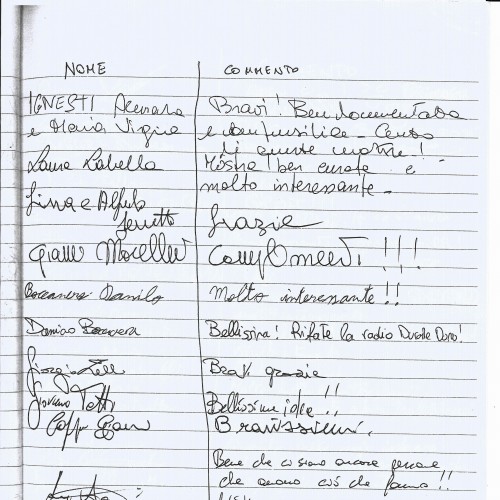 NOME COMMENTO
IGNESTI Bravi! Ben documentata
e Maria e comprensibile - Cento
di queste mostre!
Laura Labella Mostra ben curata e
molto interessante -
Lina e Alfredo
Grazie
Gianni Mocellin Complimenti!!!
Boccanera Danilo Molto interessante!!
Damiano Boccanera Bellissima! Rifate la radio Durale Doro!
Giorgio Bravi grazie
Giovanni Totti Bellissime idee!!
Bravissimi.
Bene che ci siano ancora persone
che amano ciò che fanno!!